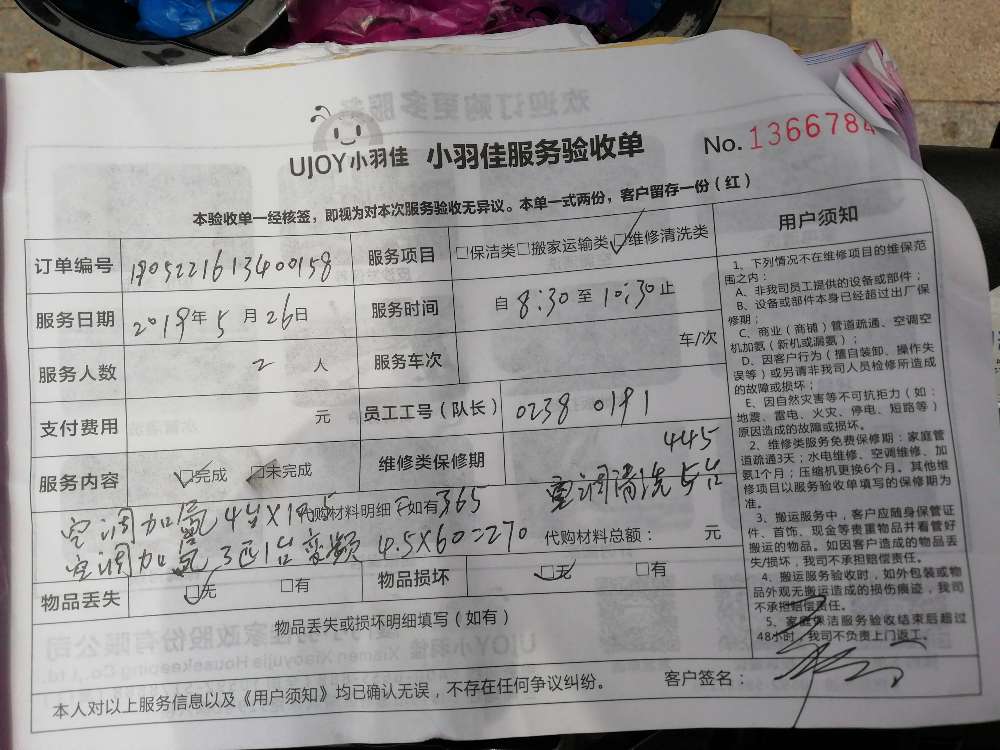 UJOY小羽佳 小羽佳服务验收单 No. 1366784
本验收单一经核签，即视为对本次服务验收无异议。本单一式两份，客户留存一份（红）
订单编号 1905221613400158 服务项目 □保洁类□搬家运输类□维修清洗类
服务日期 2019年 5 月 26日 服务时间 自 8:30 至 10:30 止
服务人数 2 人 服务车次 车/次
支付费用 元 员工工号（队长） 0238 0191
服务内容 □完成 □未完成 维修类保修期 445
空调加氟 4台X 代购材料明细 如有 365 空调清洗 5台
空调加氟 3匹1台变频 4.5X60=270 代购材料总额： 元
物品丢失 □无 □有 物品损坏 □无 □有
物品丢失或损坏明细填写（如有）
本人对以上服务信息以及《用户须知》均已确认无误，不存在任何争议纠纷。 客户签名：
用户须知
1、下列情况不在维修项目的维保范
围之内：
A、非我司员工提供的设备或部件；
B、设备或部件本身已经超过出厂保
修期；
C、商业（商铺）管道疏通、空调空
机加氨（新机或漏氨）；
D、因客户行为（擅自装卸、操作失
误等）或另请非我司人员检修所造成
的故障或损坏；
E、因自然灾害等不可抗拒力（如：
地震、雷电、火灾、停电、短路等）
原因造成的故障或损坏。
2、维修类服务免费保修期：家庭管
道疏通3天；水电维修、空调维修、加
氨1个月；压缩机更换6个月。其他维
修项目以服务验收单填写的保修期为
准。
3、搬运服务中，客户应随身保管证
件、首饰、现金等贵重物品并看管好
搬运的物品。如因客户造成的物品丢
失/损坏，我司不承担赔偿责任。
4、搬运服务验收时，如外包装或物
品外观无搬运造成的损伤痕迹，我司
不承担赔偿责任。
5、家庭保洁服务验收结束后超过
48小时，我司不负责上门返工。